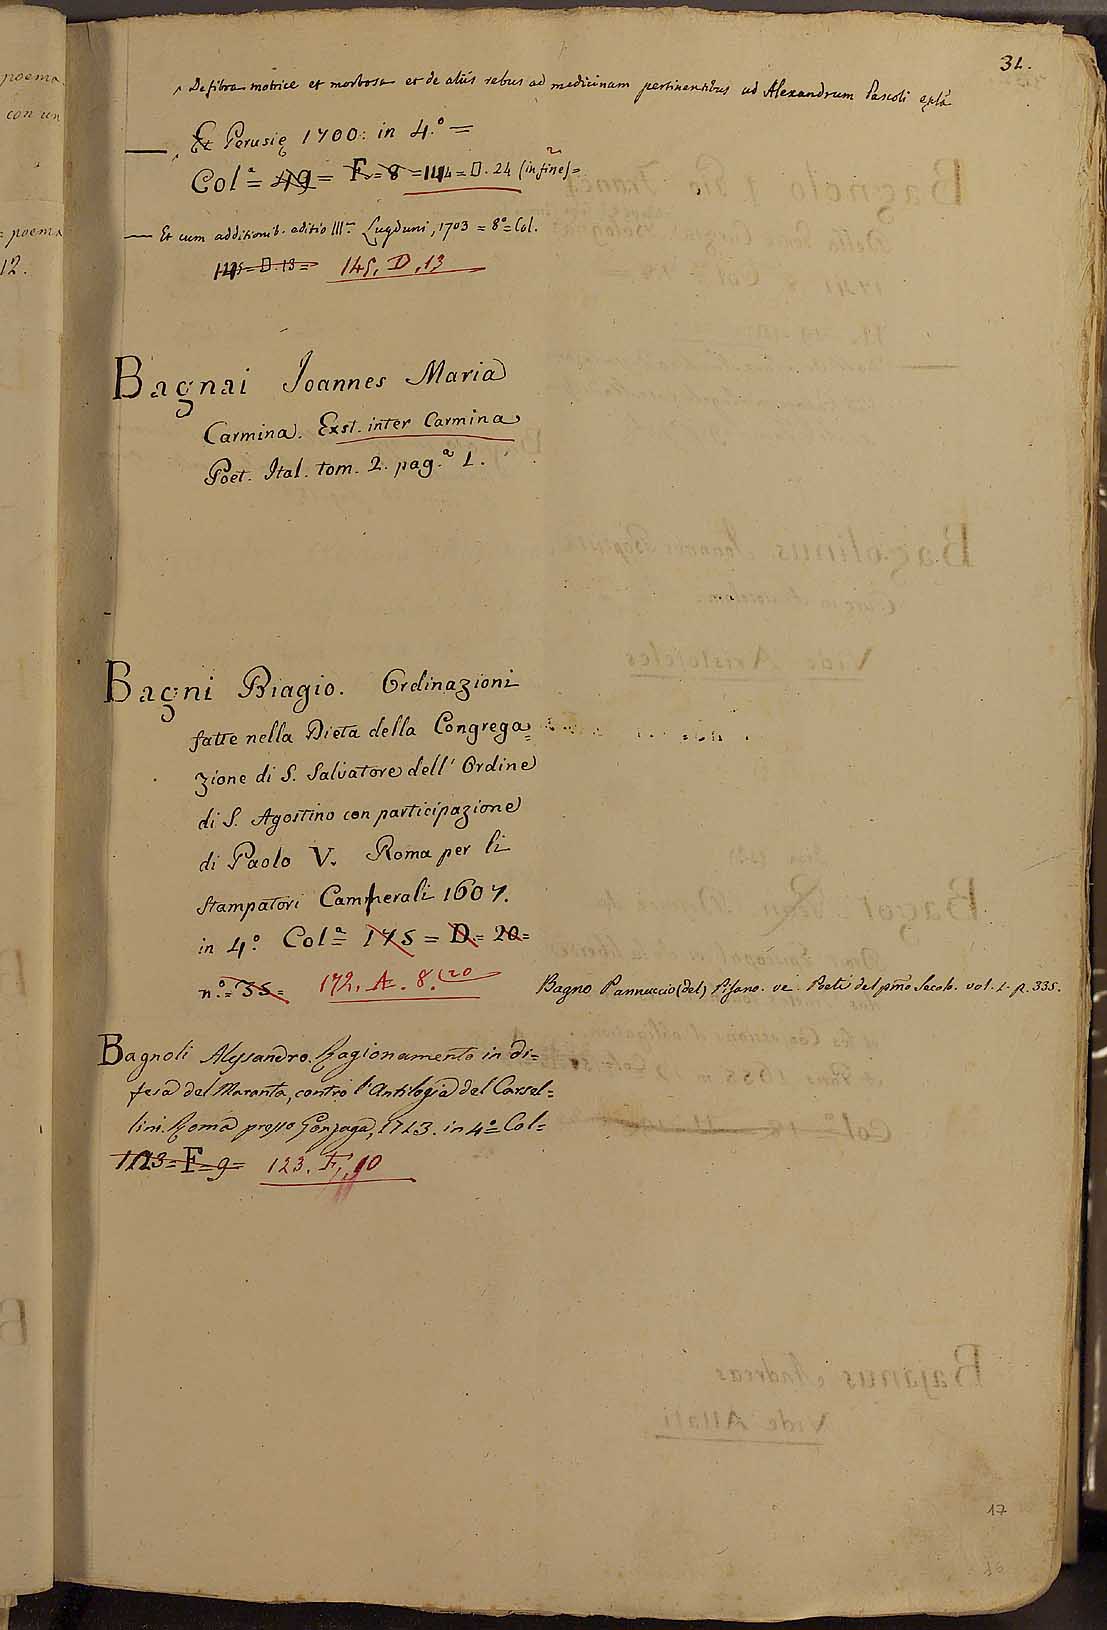 31.
De fibra motrice et morbosa et de aliis rebus ad medicinam pertinentibus ad Alexandrum Pascoli eplã
— Et Perusię 1700: in 4.º =
Colª = 49 = F. = 8 = 144 = D. 24 (in fine) =
— Et cum additionib. editio IIIª Lugduni, 1703 = 8º = Col.
145 = D. 13 = 145, D, 13
Bagnai Joannes Maria
Carmina. Exst. inter Carmina
Poet. Ital. tom. 2. pag.ª 1.
Bagni Biagio. Ordinazioni
fatte nella Dieta della Congrega=
zione di S. Salvatore dell' Ordine
di S. Agostino con participazione
di Paolo V. Roma per li
Stampatori Cammerali 1607.
in 4.º Colª = 175 = D. = 20 =
n.º = 35 = 172. A. 8. (20
Bagno Pannuccio (del) Pisano. ve. Poeti del pmõ Secolo. vol. 1. p. 335.
Bagnoli Alessandro. Ragionamento in di=
fesa del Maranta, contro l'Antilogia del Carsel=
lini. Roma presso Gonzaga, 1713. in 4º = Col =
123 = F = 9 = 123. F, 10
17